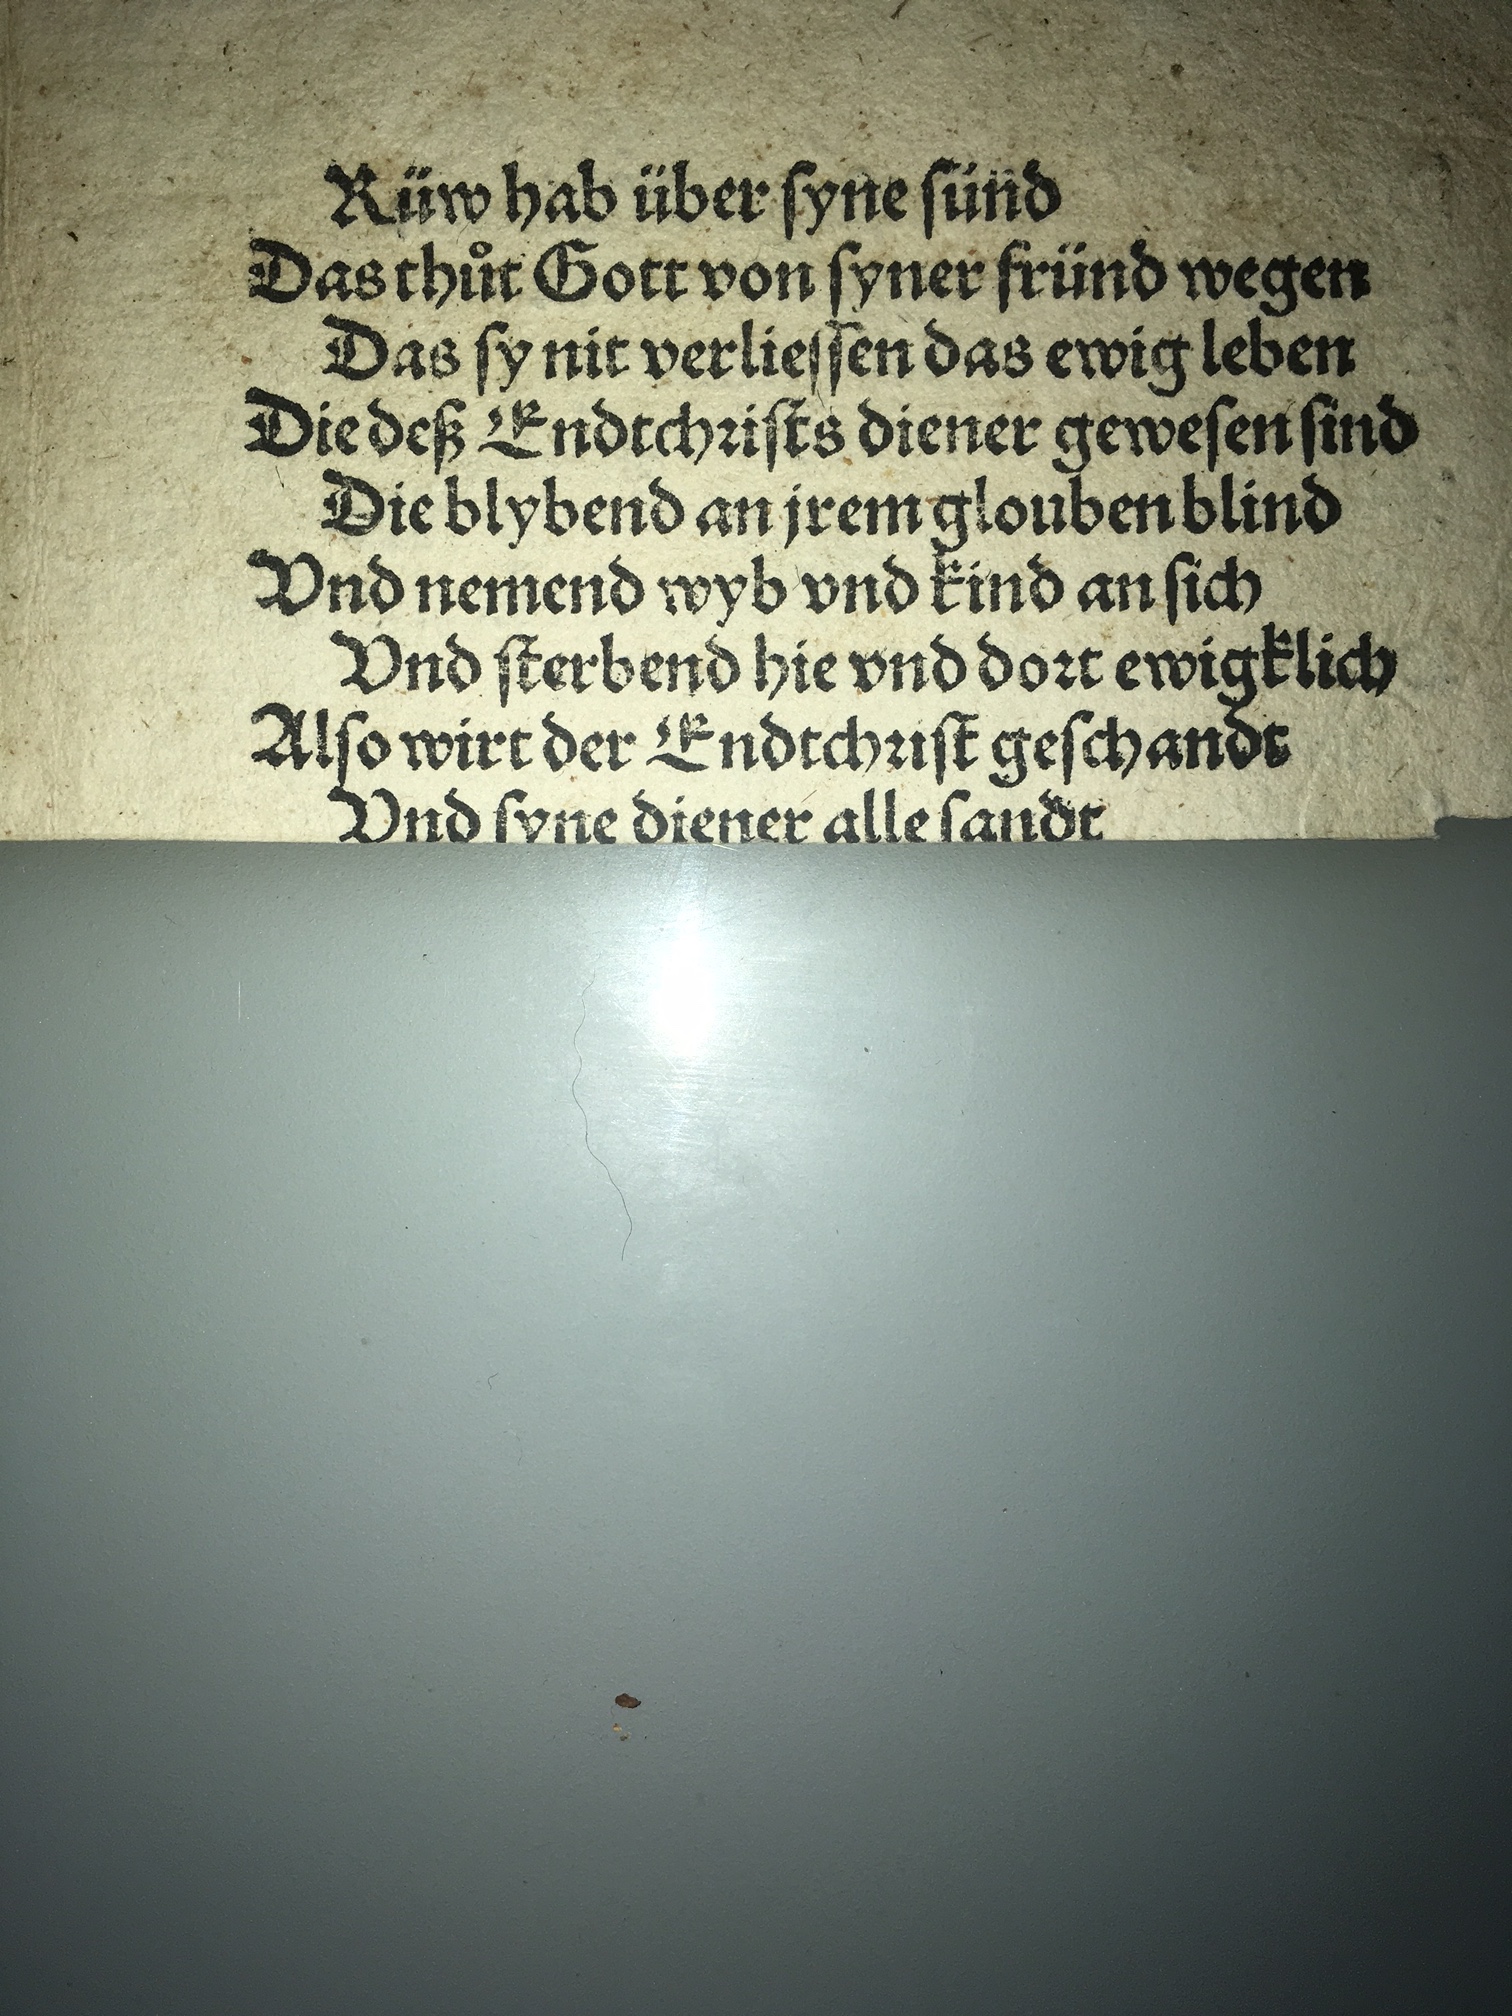 Rüw hab über syne sünd
Das thůt Gott von syner fründ wegen
Das sy nit verliessen das ewig leben
Die deß Endtchrists diener gewesen sind
Die blybend an jrem glouben blind
Vnd nemend wyb vnd kind an sich
Vnd sterbend hie vnd dort ewigklich
Also wirt der Endtchrist geschandt
Vnd syne diener alle sandt